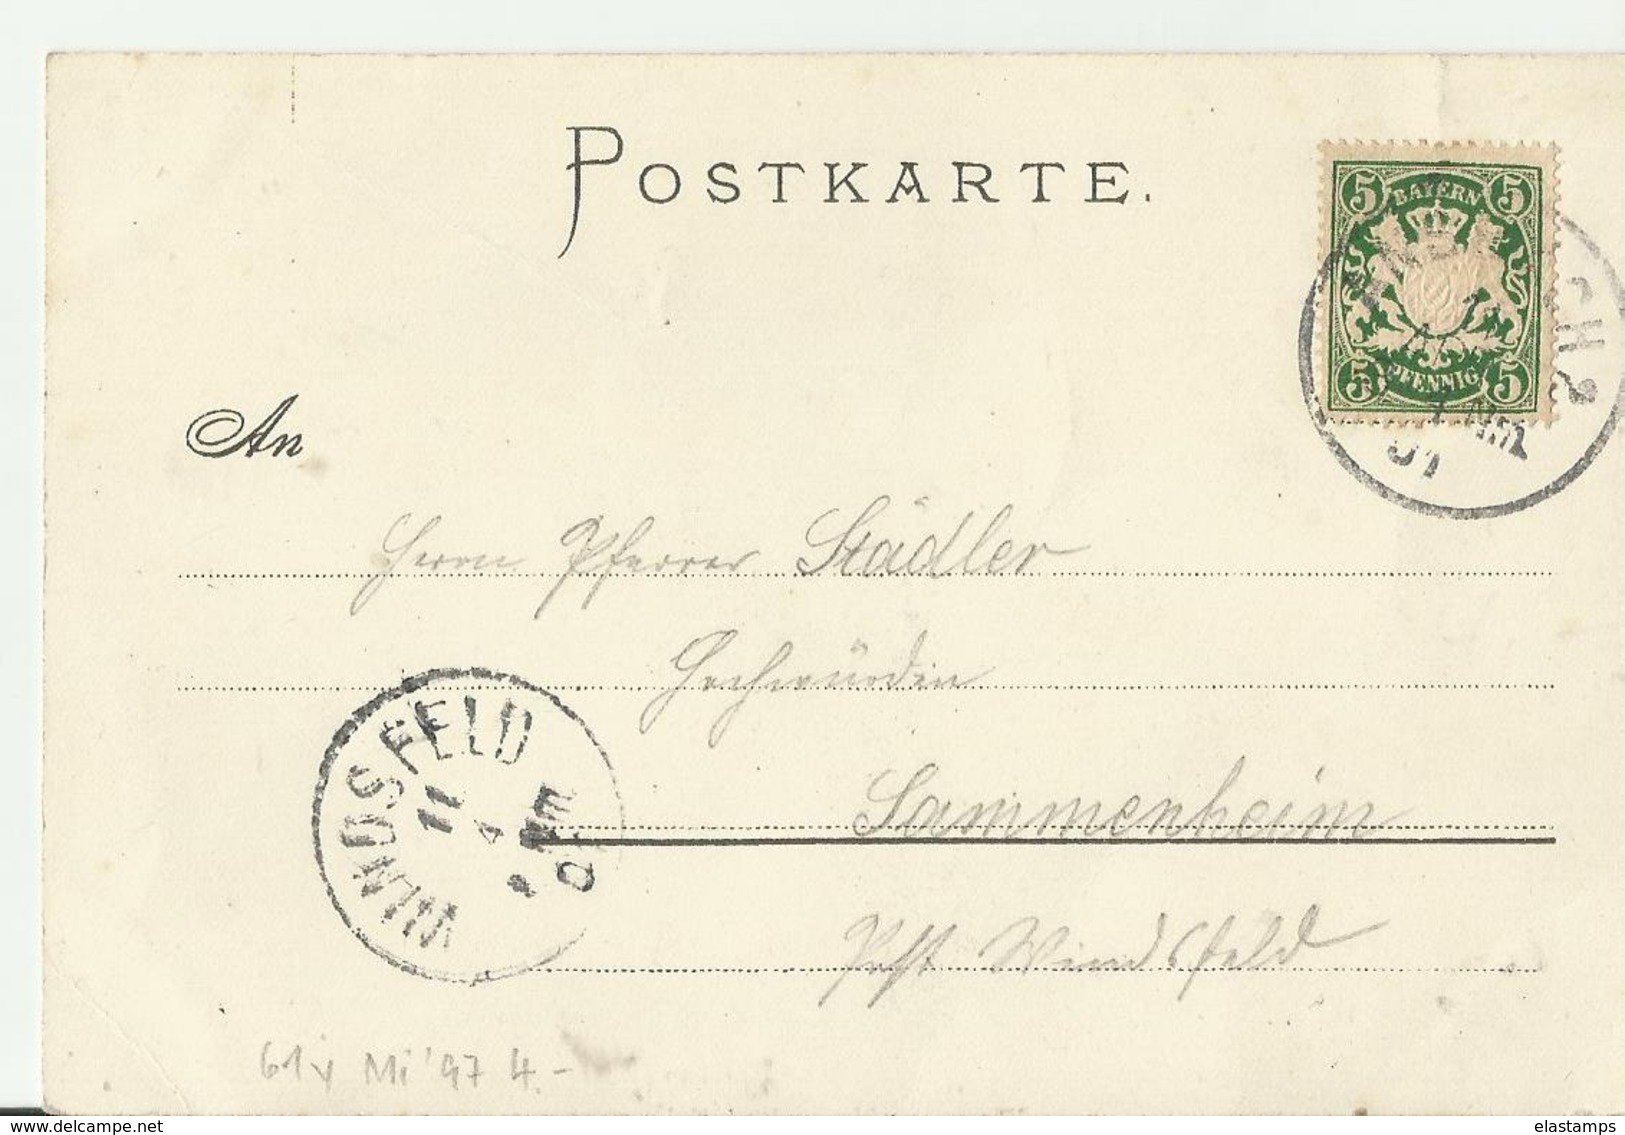 POSTKARTE.
5 BAYERN 5
5 PFENNIG 5
ANSBACH 2
11 APR
7-8 Nm
01
An
Herrn Pfarrer Städler
Hochwürden
Sammenheim
Post Windsfeld
WINDSFELD
11
4
61y Mi '97 4.-
delcampe.net
elastamps